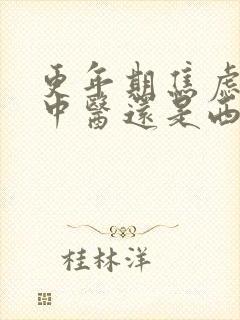 更年期焦慮
中醫還是西
桂林洋